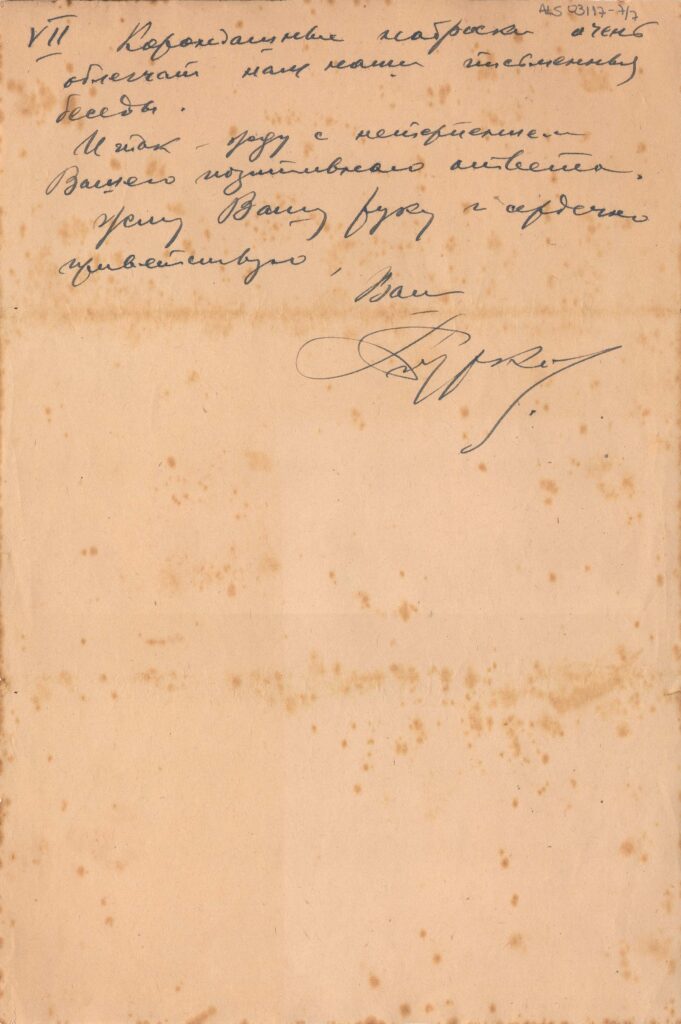 ALS 03117-7/7
VII Карандашные наброски очень
облегчат нам наши письменныя
беседы.
Итак – жду с нетерпением
Вашего позитивного ответа.
Жму Вашу руку и сердечно
приветствую,
Ваш